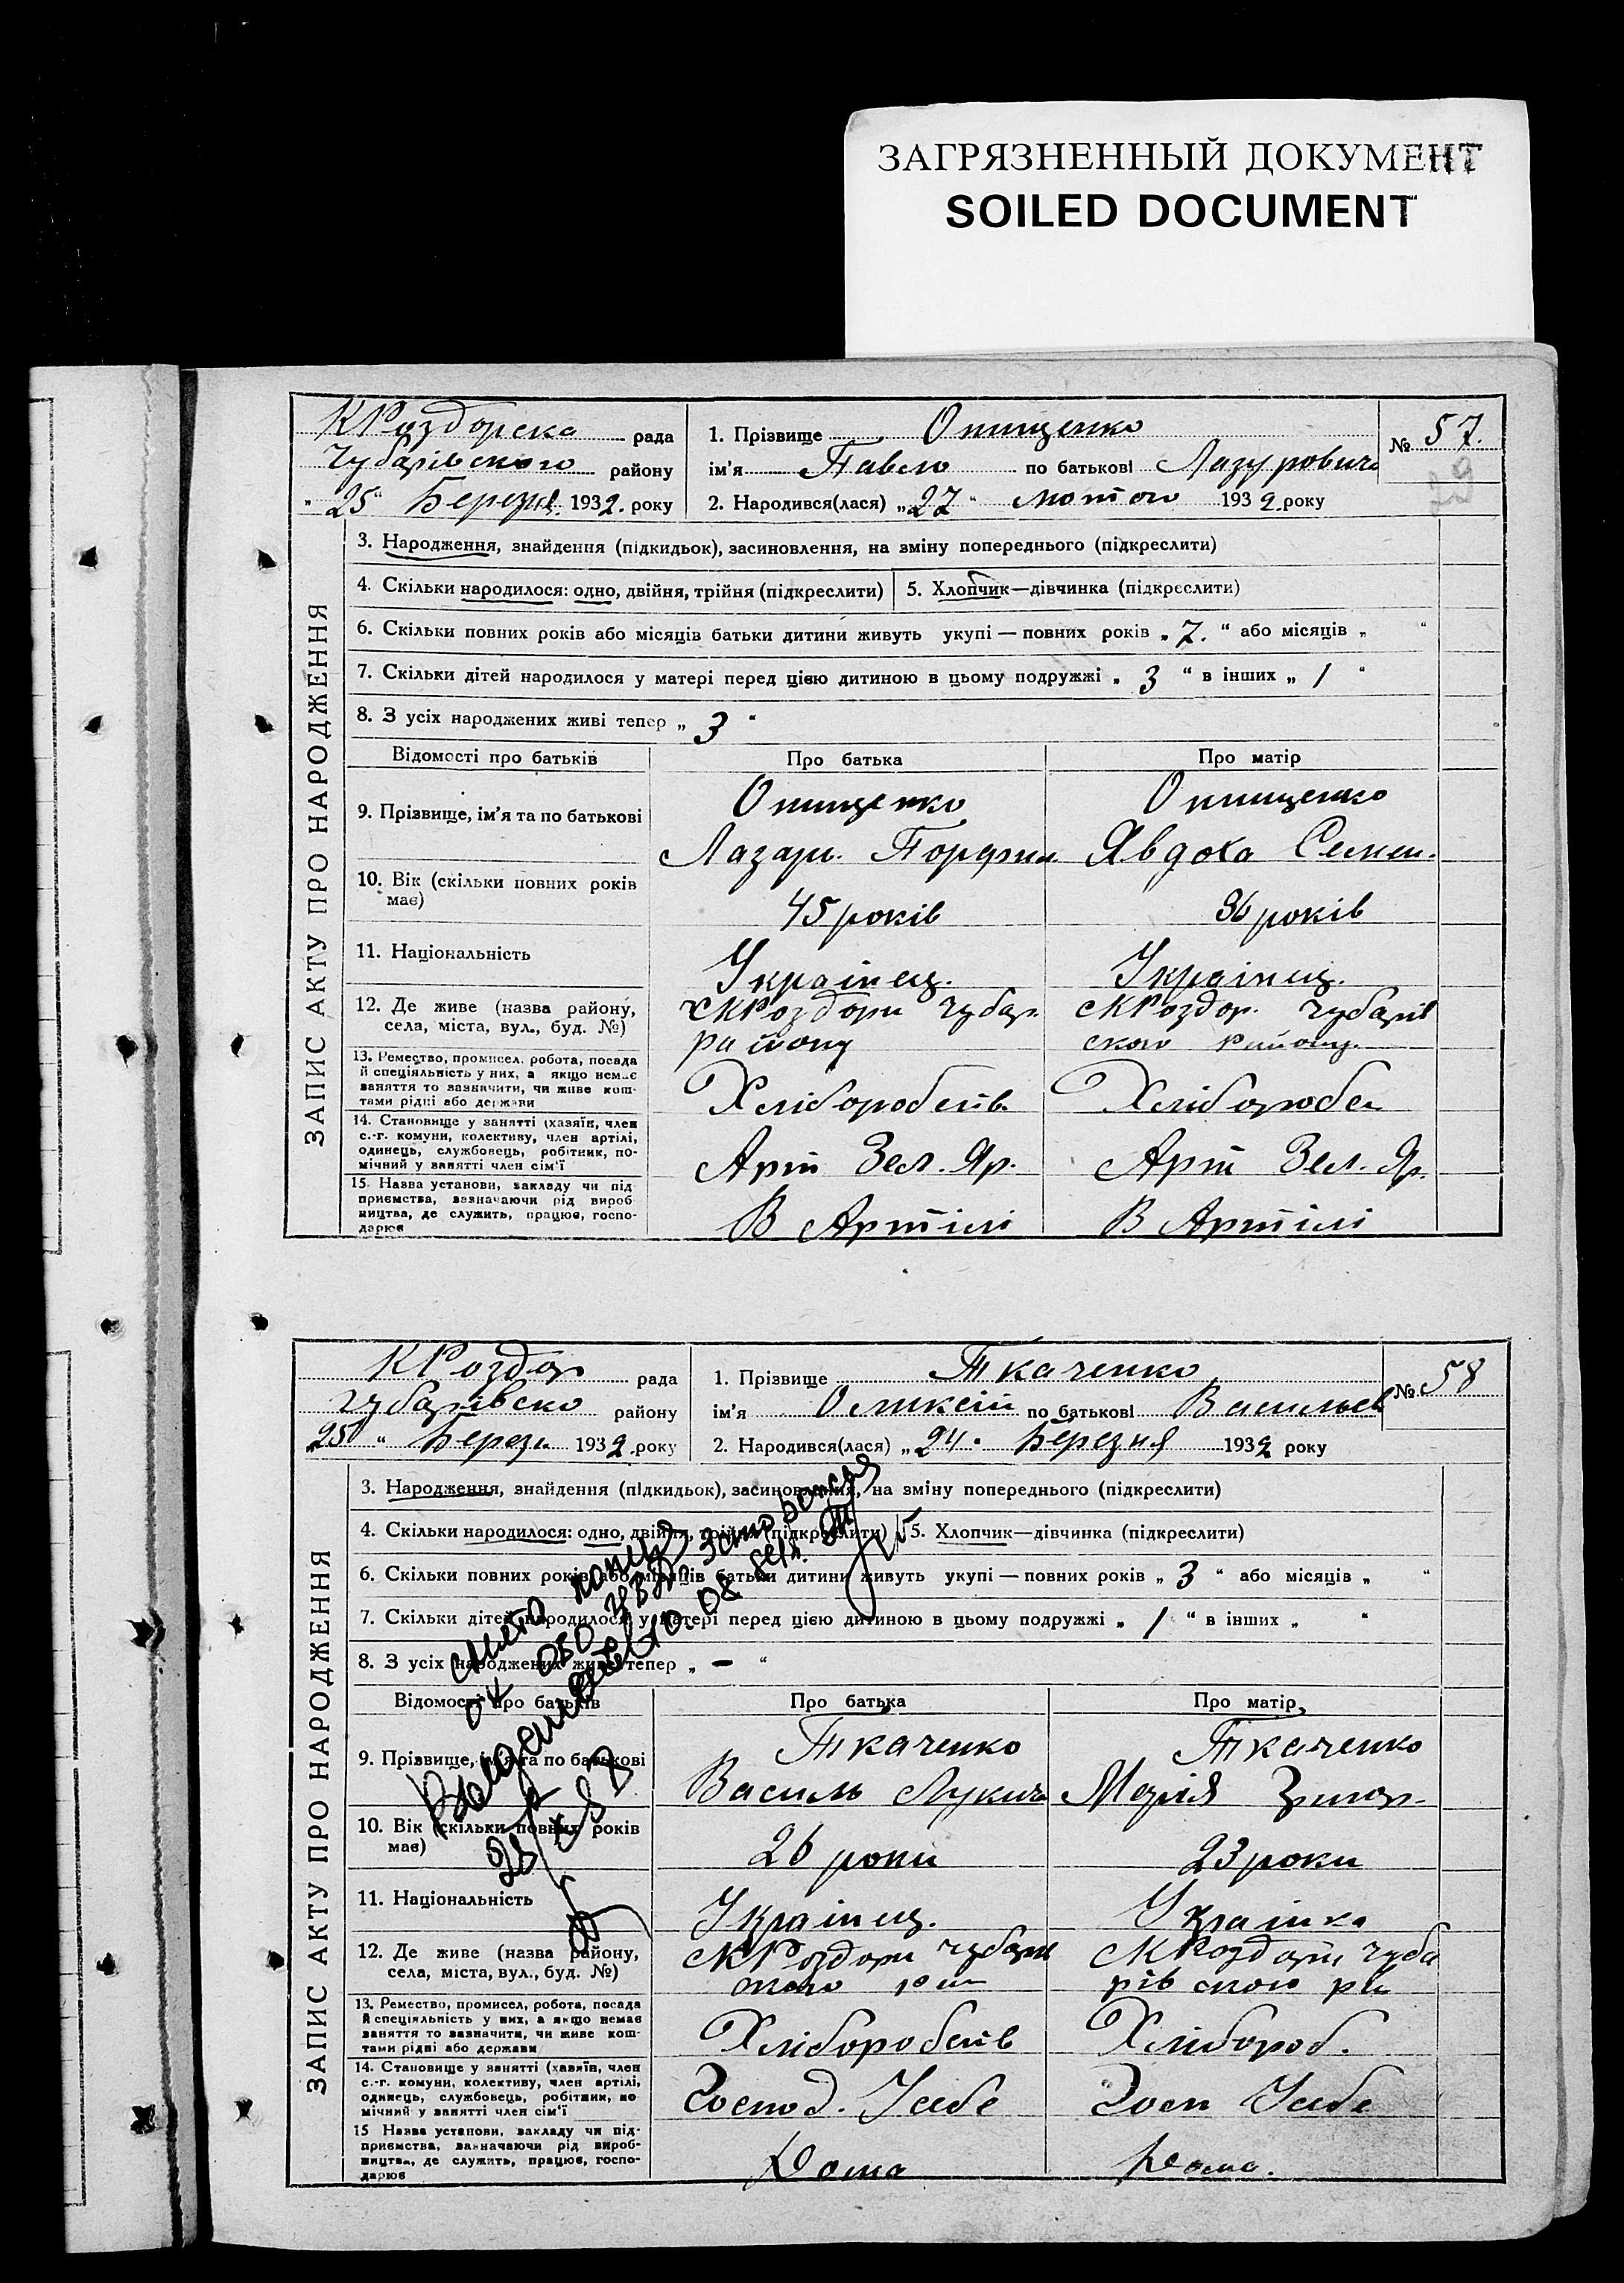 ЗАГРЯЗНЕННЫЙ ДОКУМЕНТ
SOILED DOCUMENT
КРоздорска рада
Чубарівського району
" 25 " Березня 1932. року
1. Прізвище Онищенко
ім'я Павло по батькові Лазурович
2. Народився(лася) „27 " лютого 1932. року
№ 57.
29
ЗАПИС АКТУ ПРО НАРОДЖЕННЯ
3. Народження, знайдення (підкидьок), засиновлення, на зміну попереднього (підкреслити)
4. Скільки народилося: одно, двійня, трійня (підкреслити)
5. Хлопчик—дівчинка (підкреслити)
6. Скільки повних років або місяців батьки дитини живуть укупі — повних років „ 7. " або місяців „ "
7. Скільки дітей народилося у матері перед цією дитиною в цьому подружжі „ 3 " в інших „ 1 "
8. З усіх народжених живі тепер „ 3 "
Відомості про батьків Про батька Про матір
9. Прізвище, ім'я та по батькові
Онищенко Онищенко
Лазарь Порфи Явдоха Семен.
10. Вік (скільки повних років
має)
45 років 36 років
11. Національність
Українец. Українец.
12. Де живе (назва району,
села, міста, вул., буд. №)
сКРоздори Чубар. сКРоздор. Чубарів
району ского району.
13. Ремество, промисел, робота, посада
й спеціяльність у них, а якщо немає
заняття то зазначити, чи живе кош-
тами рідні або держави
Хлібороб Хлібороб
14. Становище у занятті (хазяїн, член
с.-г. комуни, колективу, член артілі,
одинець, службовець, робітник, по-
мічний у занятті член сім'ї
Арт Зел. Яр. Арт Зел. Яр.
15. Назва установи, закладу чи під-
приємства, зазначаючи рід вироб-
ництва, де служить, працює, госпо-
дарює
В Артілі В Артілі
КРоздор рада
Чубарівско району
„25 " Берез 1932. року
1. Прізвище Ткаченко
ім'я Олексій по батькові Васильев
2. Народився(лася) „24. Березня 1932 року
№ 58
ЗАПИС АКТУ ПРО НАРОДЖЕННЯ
3. Народження, знайдення (підкидьок), засиновлення, на зміну попереднього (підкреслити)
4. Скільки народилося: одно, двійня, трійня (підкреслити)
5. Хлопчик—дівчинка (підкреслити)
6. Скільки повних років або місяців батьки дитини живуть укупі — повних років „ 3 " або місяців „ "
7. Скільки дітей народилося у матері перед цією дитиною в цьому подружжі „ 1 " в інших „ "
8. З усіх народжених живі тепер „ — "
Відомості про батьків Про батька Про матір
9. Прізвище, ім'я та по батькові
Ткаченко Ткаченко
Василь Лукич Марія Григор.
10. Вік (скільки повних років
має)
26 роки 23 роки
11. Національність
Українец. Українка
12. Де живе (назва району,
села, міста, вул., буд. №)
сКРоздори Чубарів сКРоздори Чуба
рівского ра
13. Ремество, промисел, робота, посада
й спеціяльність у них, а якщо немає
заняття то зазначити, чи живе кош-
тами рідні або держави
Хлібороб Хлібороб.
14. Становище у занятті (хазяїн, член
с.-г. комуни, колективу, член артілі,
одинець, службовець, робітник, по-
мічний у занятті член сім'ї
Господ. Усебе Госп Усебе
15 Назва установи, закладу чи під-
приємства, зазначаючи рід вироб-
ництва, де служить, працює, госпо-
дарює
Дома Дома.